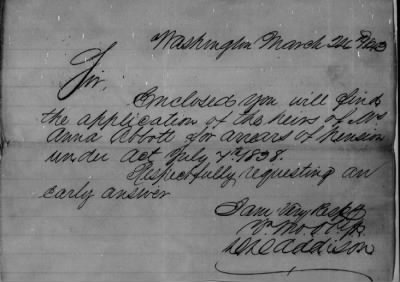 Washington March 24
Sir,
Enclosed you will find
the application of the heirs of Mrs
Anna Abbott for arears of Pension
under Act July 7th 1838.
Respectfully requesting an
early answer
I am Very Respfy
Yr Mo Ob
Addison